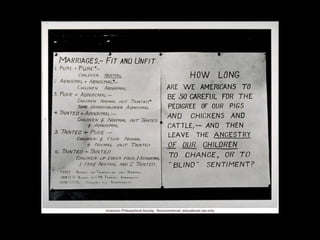 MARRIAGES,— FIT AND UNFIT
1. PURE + PURE:—
CHILDREN NORMAL
2. ABNORMAL + ABNORMAL:—
CHILDREN ABNORMAL
3. PURE + ABNORMAL:—
CHILDREN NORMAL BUT TAINTED
SOME GRANDCHILDREN ABNORMAL
4. TAINTED + ABNORMAL:—
CHILDREN ½ NORMAL BUT TAINTED
½ ABNORMAL
5. TAINTED + PURE:—
CHILDREN: ½ PURE NORMAL
½ NORMAL BUT TAINTED
6. TAINTED + TAINTED:—
CHILDREN: OF EVERY FOUR, 1 ABNORMAL
1 PURE NORMAL AND 2 TAINTED.
HOW LONG
ARE WE AMERICANS TO
BE SO CAREFUL FOR THE
PEDIGREE OF OUR PIGS
AND CHICKENS AND
CATTLE,— AND THEN
LEAVE THE ANCESTRY
OF OUR CHILDREN
TO CHANCE, OR TO
"BLIND" SENTIMENT?
American Philosophical Society. Noncommercial, educational use only.